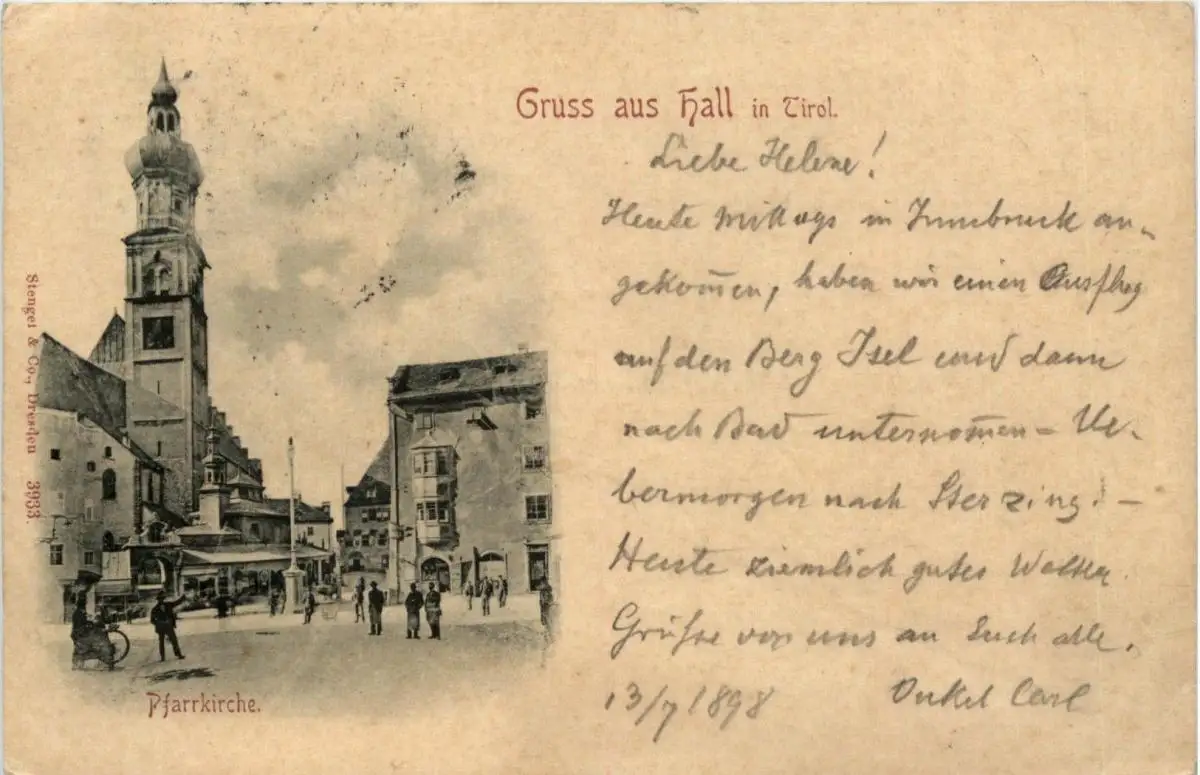 Gruss aus Hall in Tirol.
Liebe Helene!
Heute Mittags in Innsbruck an-
gekom̅en, haben wir einen Ausflug
auf den Berg Isel und dann
nach Bad unternom̅en – Ue-
bermorgen nach Sterzing! –
Heute ziemlich gutes Wetter.
Grüsse von uns an Euch alle.
13/7 1898 Onkel Carl
Stengel & Co., Dresden 3933.
Pfarrkirche.